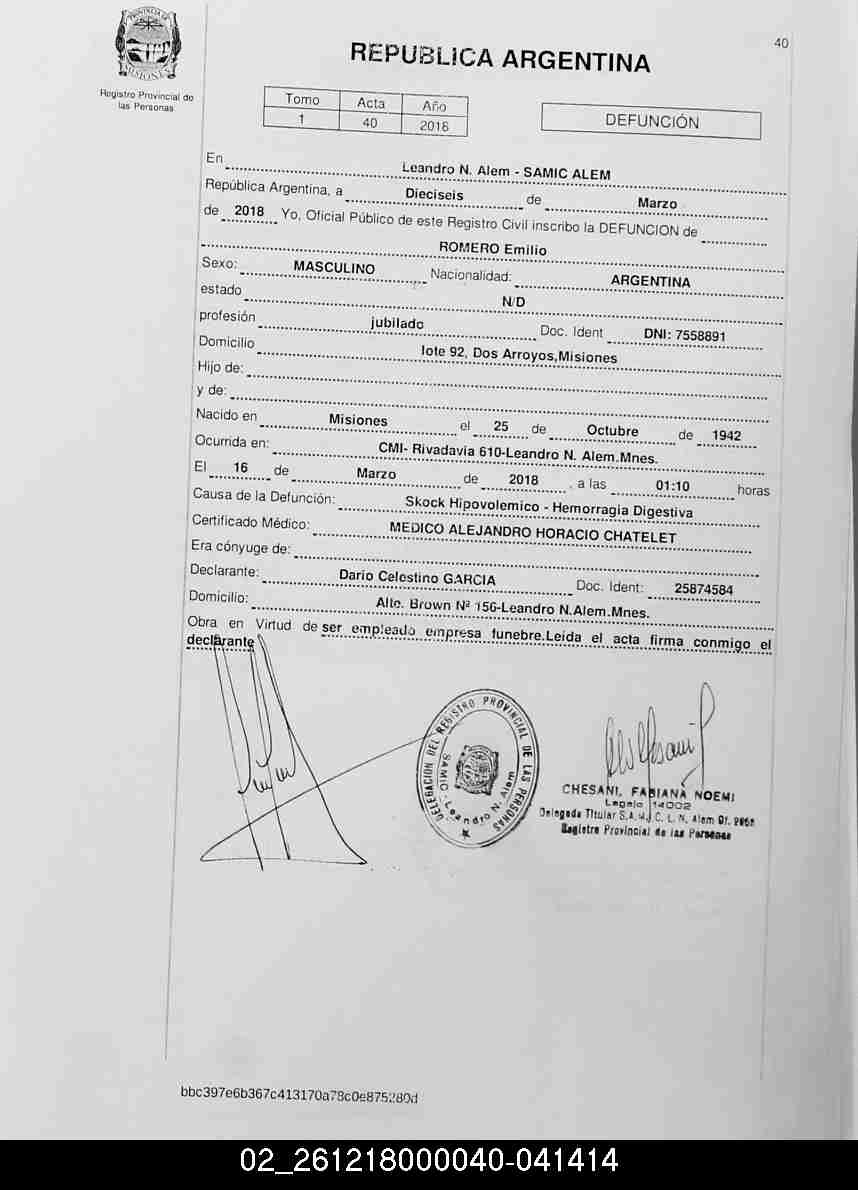 PROVINCIA DE
MISIONES
Registro Provincial de
las Personas
40
REPUBLICA ARGENTINA
Tomo Acta Año
1 40 2018
DEFUNCIÓN
En Leandro N. Alem - SAMIC ALEM
República Argentina, a Dieciseis de Marzo
de 2018 Yo, Oficial Público de este Registro Civil inscribo la DEFUNCION de
ROMERO Emilio
Sexo: MASCULINO Nacionalidad: ARGENTINA
estado N/D
profesión jubilado Doc. Ident DNI: 7558891
Domicilio lote 92, Dos Arroyos,Misiones
Hijo de:
y de:
Nacido en Misiones el 25 de Octubre de 1942
Ocurrida en: CMI- Rivadavia 610-Leandro N. Alem.Mnes.
El 16 de Marzo de 2018 , a las 01:10 horas
Causa de la Defunción: Skock Hipovolemico - Hemorragia Digestiva
Certificado Médico: MEDICO ALEJANDRO HORACIO CHATELET
Era cónyuge de:
Declarante: Dario Celestino GARCIA Doc. Ident: 25874584
Domicilio: Alte. Brown Nº 156-Leandro N.Alem.Mnes.
Obra en Virtud de ser empleado empresa funebre.Leida el acta firma conmigo el
declarante
DELEGACION DEL REGISTRO PROVINCIAL DE LAS PERSONAS
SAMIC - Leandro N. Alem
CHESANI, FABIANA NOEMI
Legajo 14002
Delegada Titular S.A.M.I.C. L. N. Alem Of.
Registro Provincial de las Personas
bbc397e6b367c413170a78c0e875280d
02_261218000040-041414